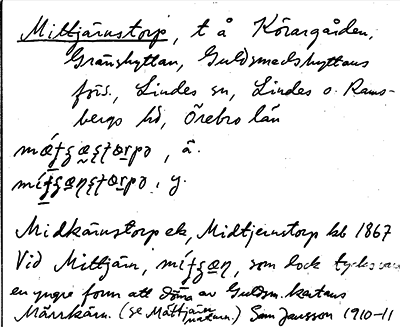 Mittjärnstorp, t å Körargården,
Gränshyttan, Guldsmedshyttans
förs., Lindes sn, Lindes o. Rams-
bergs hd, Örebro län
å.
y.
Midkärnstorp ek, Midtjernstorp kb 1867
Vid Mittjärn, som dock tycks vara
en yngre form att döma av Guldsm.kartans
Märrkärn. (se Mättjärn) Sam Jansson 1910-11